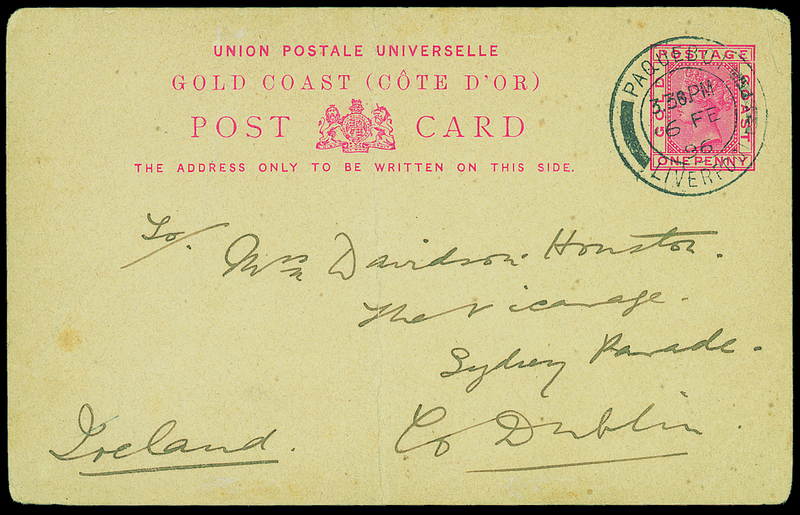 UNION POSTALE UNIVERSELLE
GOLD COAST (CÔTE D'OR)
POST CARD
THE ADDRESS ONLY TO BE WRITTEN ON THIS SIDE.
POSTAGE
GOLD COAST
ONE PENNY
PAQUEBOT
3.30PM
6 FE
96
LIVERPO
To/ Mrs Davidson-Houston.
The Vicarage.
Sydney Parade.
Co Dublin.
Ireland.